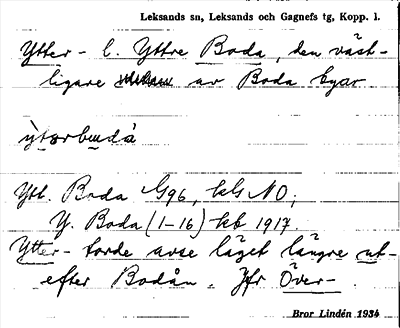 Leksands sn, Leksands och Gagnefs tg, Kopp. l.
Ytter- l. Yttre Boda, den väst-
ligare av Boda byar
Ytt. Boda G96, NO;
Y. Boda (1-16) kb 1917.
Ytter- torde avse läget längre ut-
efter Bodån. Jfr Över-.
Bror Lindén 1934